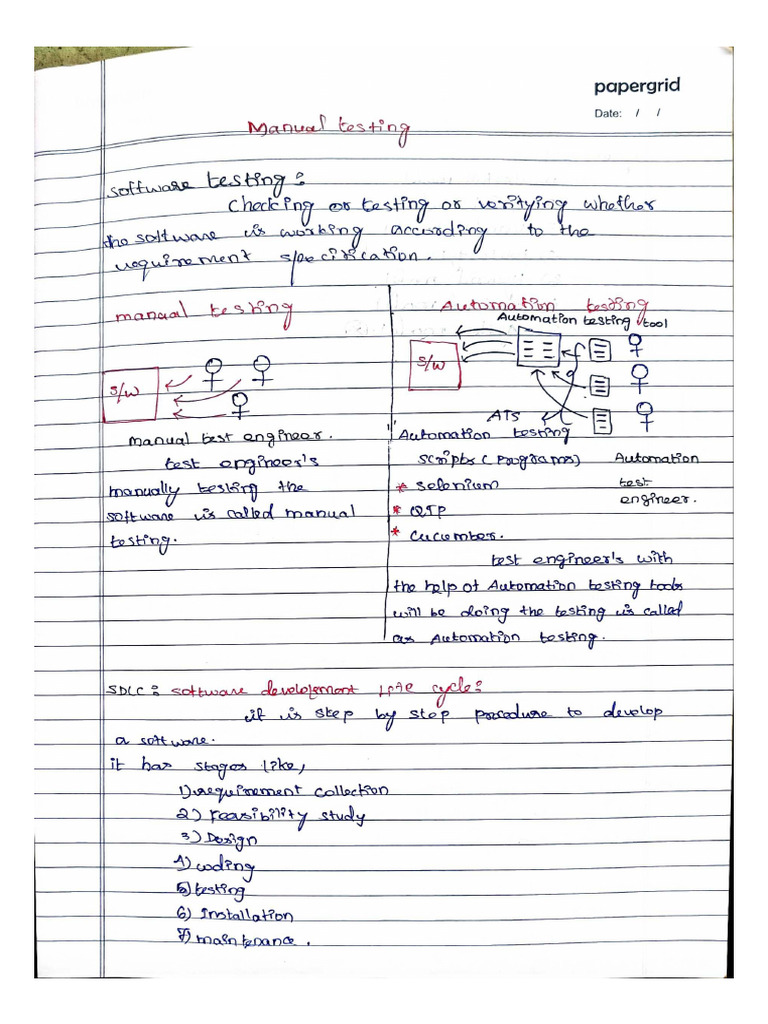 papergrid
Date: / /
Manual testing
software testing:
checking or testing or verifying whether
the software is working according to the
requirement specification.
manual testing
S/W
manual test engineer.
test engineer's
manually testing the
software is called manual
testing.
Automation testing
Automation testing tool
S/W
ATS
"Automation testing
scripts (programs)
Automation
test
engineer.
* selenium
* QTP
* cucumber.
test engineer's with
the help of Automation testing tools
will be doing the testing is called
as Automation testing.
SDLC: software development life cycle:
it is step by step procedure to develop
a software.
it has stages like,
1) requirement collection
2) Feasibility study
3) Design
4) coding
5) testing
6) Installation
7) maintenance.